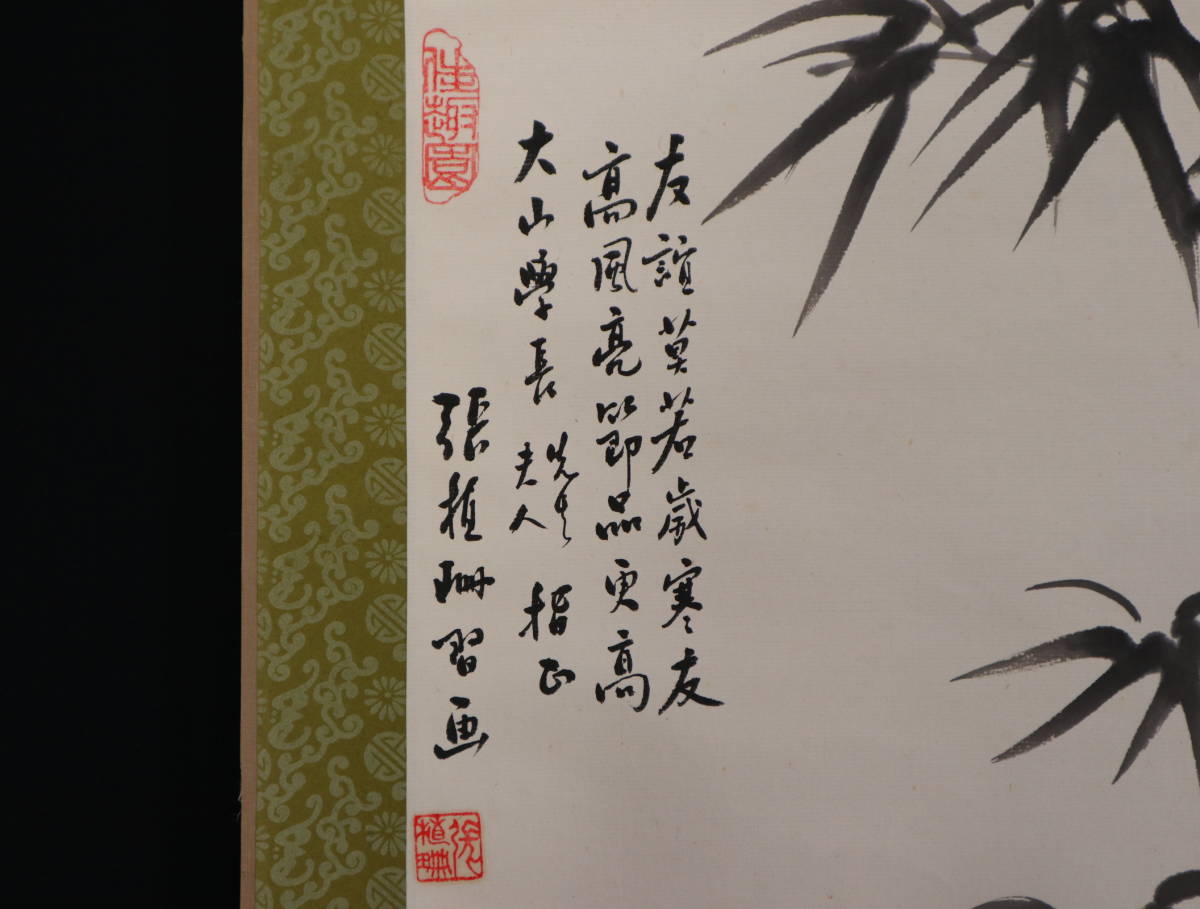 友誼莫若歲寒友
高風亮節品更高
大山學長先生夫人指正
張植珊習画
佳趣園
張植珊